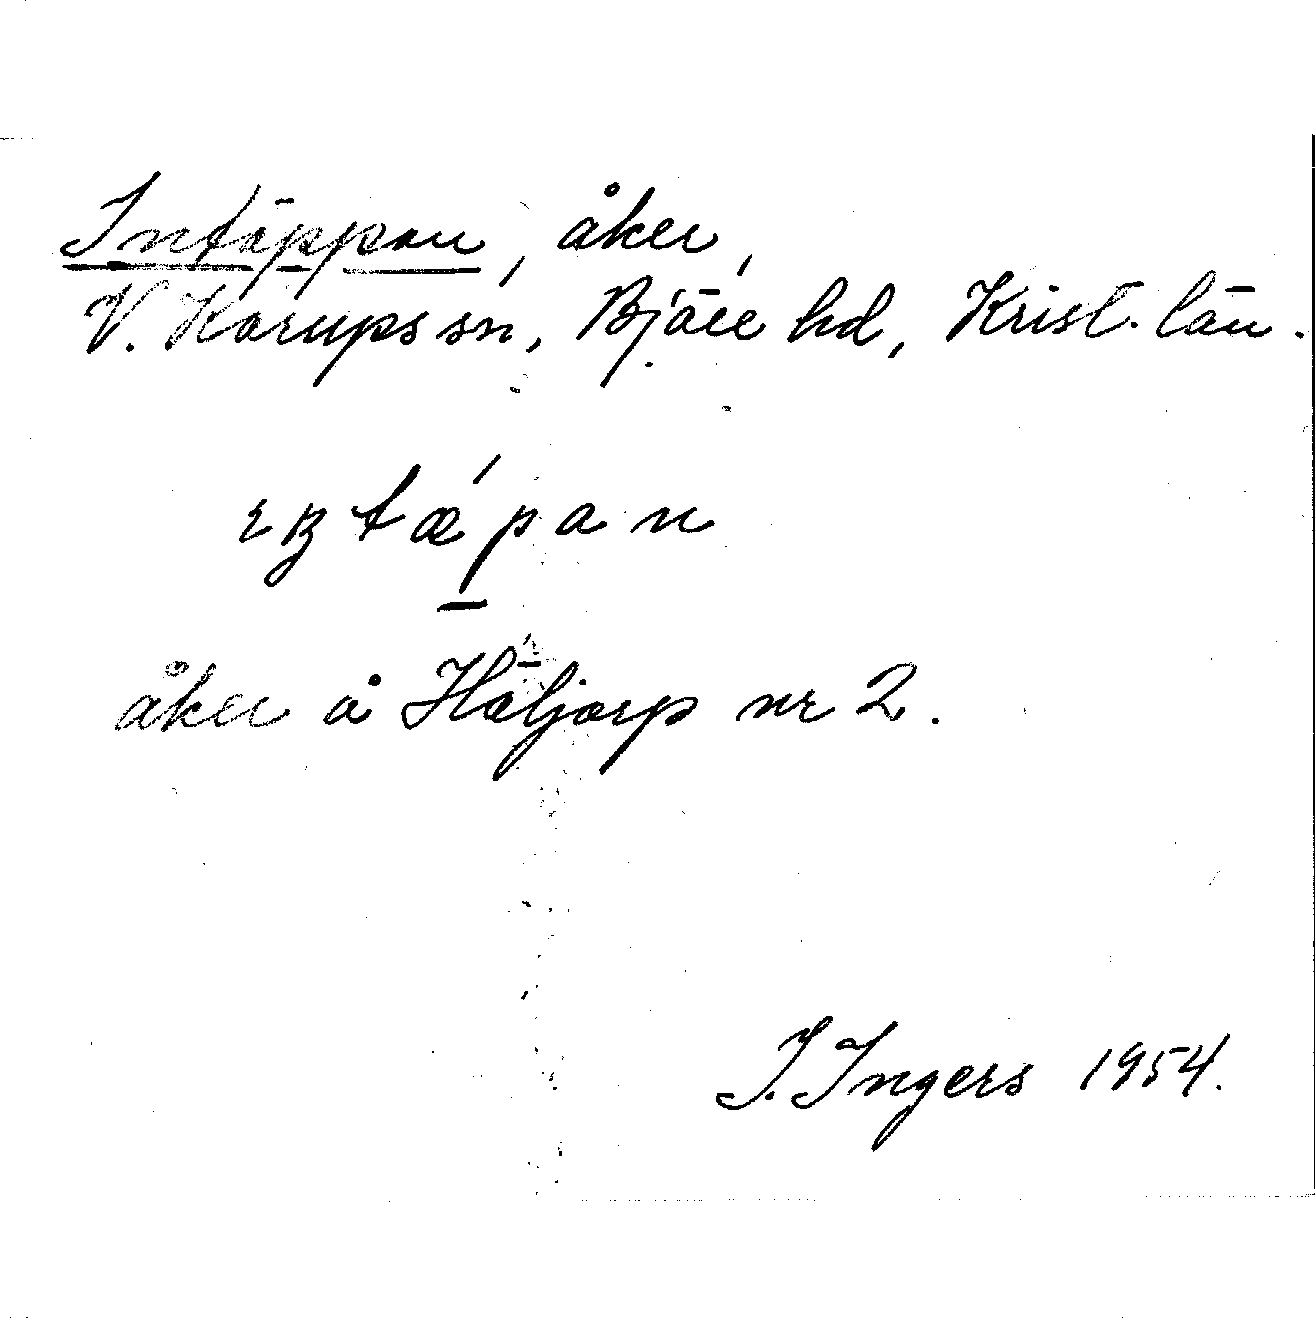 Intäppan, åker,
V. Karups sn, Bjäre hd, Krist. län.
åker å Häljarp nr 2.
I. Ingers 1954.